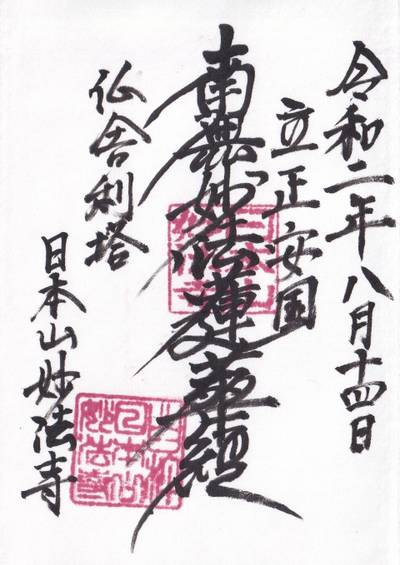 令和二年八月十四日
立正安国
南無妙法蓮華経
仏舎利塔
日本山妙法寺